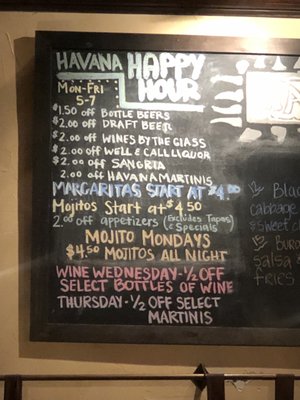 HAVANA HAPPY HOUR
MON-FRI
5-7
$1.50 off BOTTLE BEERS
$2.00 off DRAFT BEER
$2.00 off WINES BY THE GLASS
$2.00 off WELL & CALL LIQUOR
$2.00 off SANGRIA
2.00 off HAVANA MARTINIS
MARGARITAS START AT $4.00
Mojitos Start at $4.50
2.00 off appetizers (Excludes Tapas & Specials)
MOJITO MONDAYS
$4.50 MOJITOS ALL NIGHT
WINE WEDNESDAY-1/2 OFF
SELECT BOTTLES OF WINE
THURSDAY-1/2 OFF SELECT
MARTINIS
Cabbage
& sweet
salsa &
FRIES